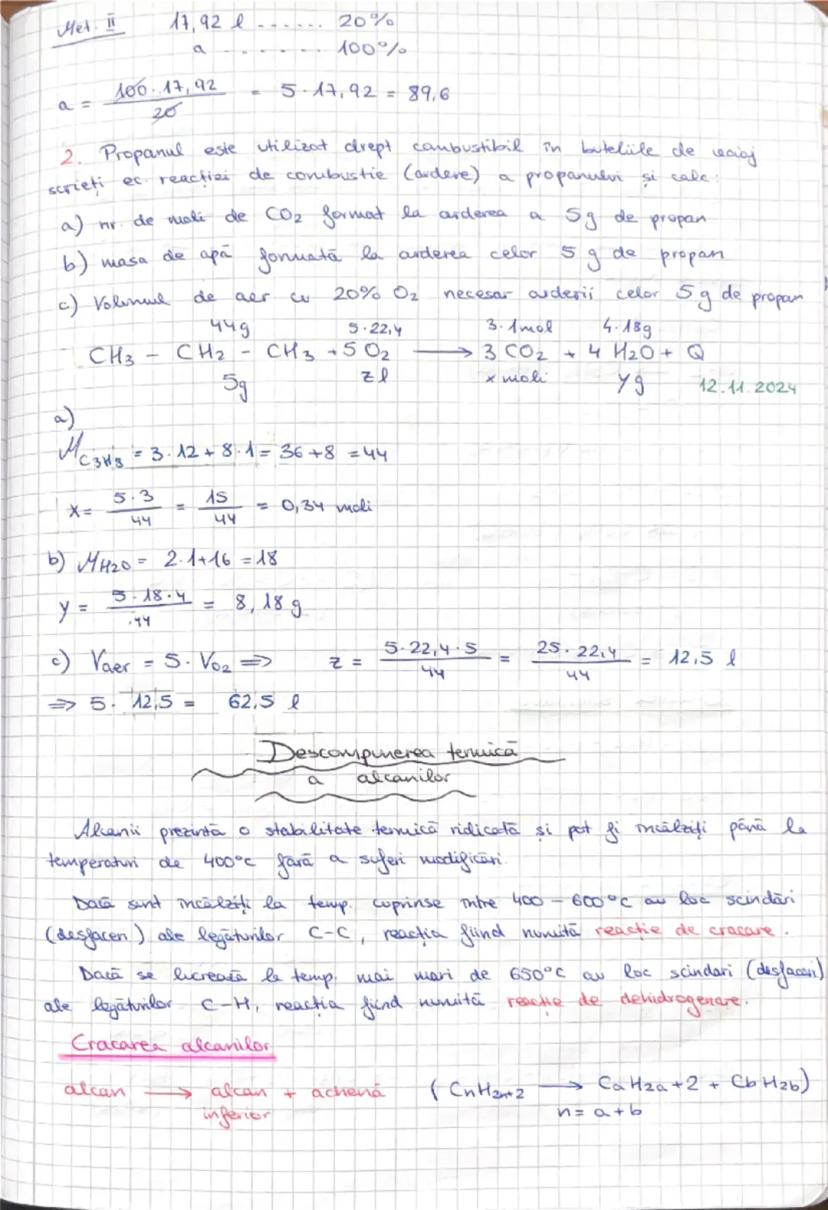 Met. II 17,92 l ...... 20%
a ...... 100%
a = 100. 17,92 / 20 = 5 . 17,92 = 89,6
2. Propanul este utilizat drept combustibil în buteliile de
scrieți ec. reacției de combustie (ardere) a propanului și calc:
a) nr. de moli de CO2 format la arderea a 5g de propan
b) masa de apă formată la arderea celor 5 g de propan
c) Volumul de aer cu 20% O2 necesar arderii celor 5 g de propan
44g 5.22,4 3.1mol 4.18g
CH3 - CH2 - CH3 + 5 O2 → 3 CO2 + 4 H2O + Q
5g z l x moli y g 12.11.2024
a)
M C3H8 = 3.12 + 8.1 = 36 + 8 = 44
x = 5.3 / 44 = 15 / 44 = 0,34 moli
b) M H2O = 2.1+16 = 18
y = 5.18.4 / 44 = 8,18 g
c) Vaer = 5. VO2 => z = 5.22,4.5 / 44 = 25.22,4 / 44 = 12,5 l
=> 5. 12,5 = 62,5 l
Descompunerea termică
a alcanilor
Alcanii prezintă o stabilitate termică ridicată și pot fi încălziți până la
temperaturi de 400°c fară a suferi modificări.
Dacă sunt încălziți la temp. cuprinse între 400 - 600°c au loc scindări
(desfaceri) ale legăturilor C-C, reacția fiind numită reacție de cracare.
Dacă se lucrează la temp. mai mari de 650°C au loc scindari (desfaceri)
ale legăturilor C-H, reacția fiind numită reacție de dehidrogenare.
Cracarea alcanilor
alcan → alcan + alchenă (CnH2n+2 → CaH2a+2 + CbH2b)
inferior n = a+b